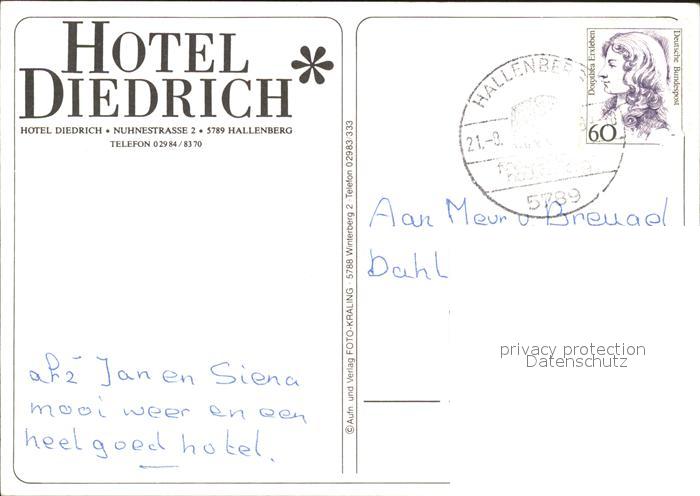 HOTEL
DIEDRICH*
HOTEL DIEDRICH • NUHNESTRASSE 2 • 5789 HALLENBERG
TELEFON 02984/8370
© Aufn. und Verlag FOTO-KRALING · 5788 Winterberg 2 · Telefon 02983/333
HALLENBE
21.-8.
5789
Dorothea Erxleben
Deutsche Bundespost
60
Aan Mevr v. Breuael
Dahl
privacy protection
Datenschutz
afz Jan en Siena
mooi weer en een
heel goed hotel.